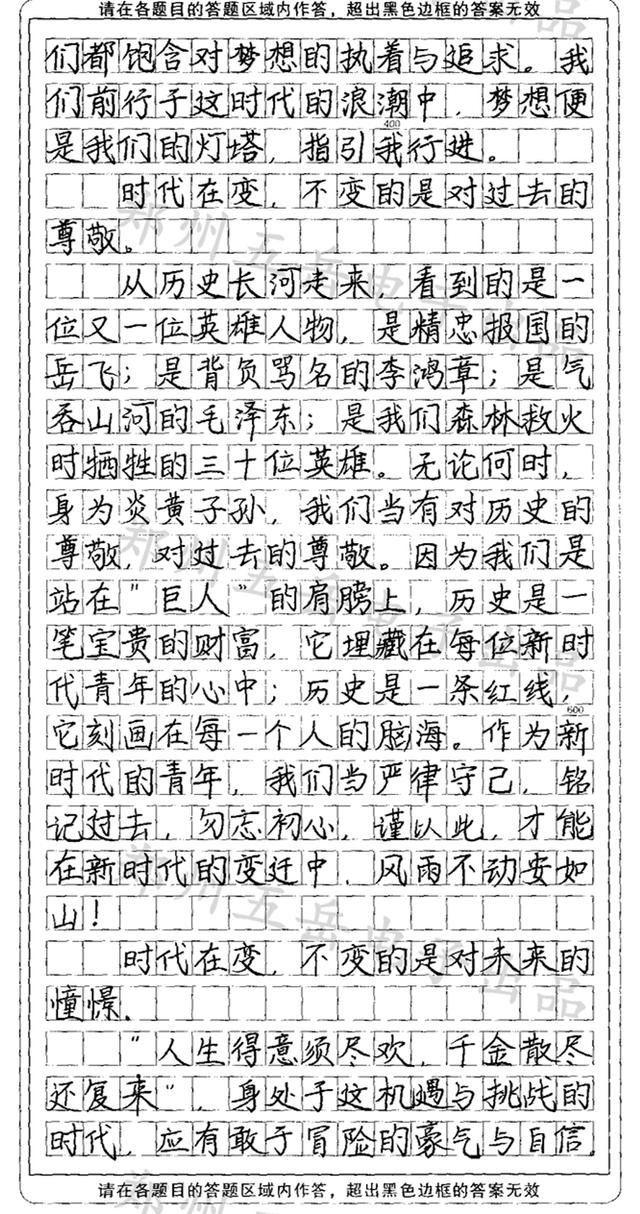 请在各题目的答题区域内作答，超出黑色边框的答案无效
们都饱含对梦想的执着与追求。我
们前行于这时代的浪潮中，梦想便
400
是我们的灯塔，指引我行进。
时代在变，不变的是对过去的
尊敬。
从历史长河走来，看到的是一
位又一位英雄人物，是精忠报国的
岳飞；是背负骂名的李鸿章；是气
吞山河的毛泽东；是我们森林救火
时牺牲的三十位英雄。无论何时，
身为炎黄子孙，我们当有对历史的
尊敬，对过去的尊敬。因为我们是
站在"巨人"的肩膀上，历史是一
笔宝贵的财富，它埋藏在每位新时
代青年的心中；历史是一条红线，
600
它刻画在每一个人的脑海。作为新
时代的青年，我们当严律守己，铭
记过去，勿忘初心，谨以此，才能
在新时代的变迁中，风雨不动安如
山！
时代在变，不变的是对未来的
憧憬.
"人生得意须尽欢，千金散尽
还复来"，身处于这机遇与挑战的
时代，应有敢于冒险的豪气与自信.
请在各题目的答题区域内作答，超出黑色边框的答案无效
郑州五岳电子出品
郑州五岳电子出品
郑州五岳电子出品